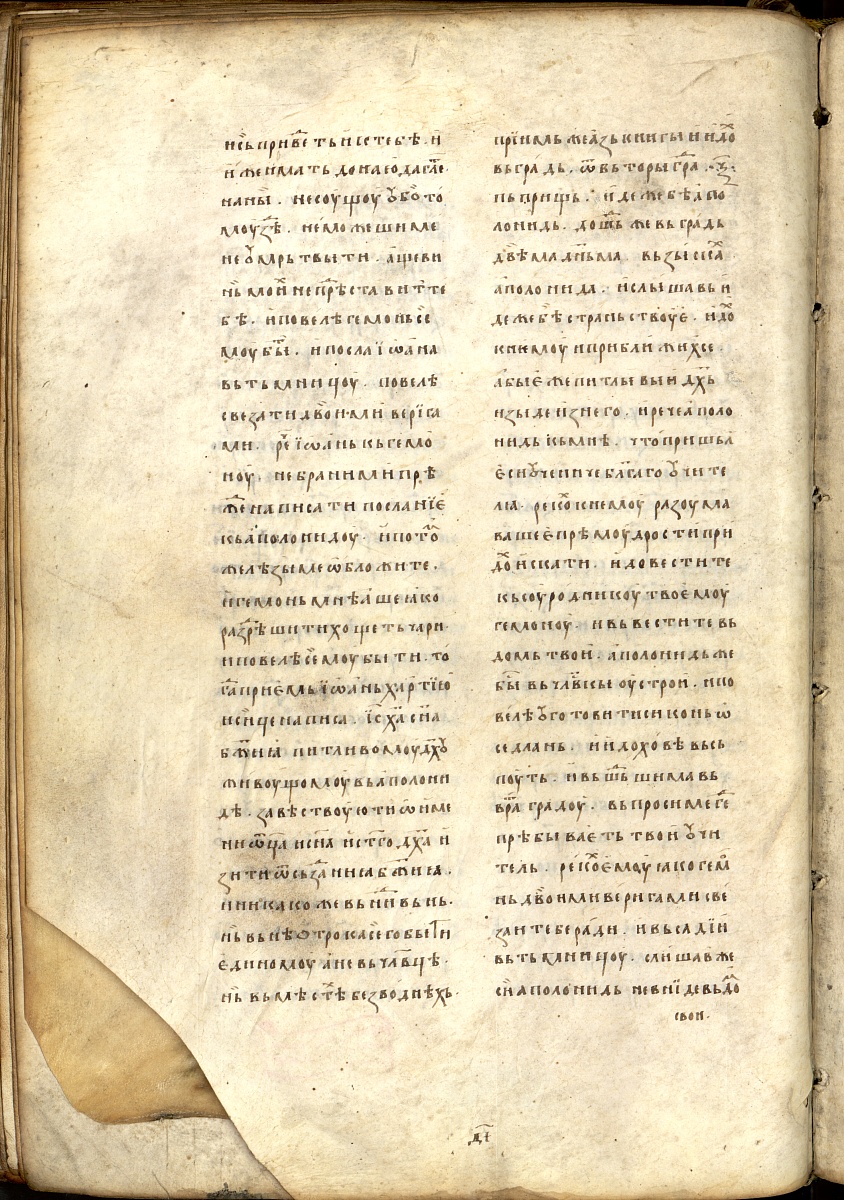 нсь приве́ть и́с тебѣ̀. и҆
и҆же и҆мать донаю́ да гл҃е
наны́. не соуꙗщоу ꙋ҆бо то́
моу ꙁѣ̀. не може ши ме
не ꙋ҆мрьтвыти. аще ви
нь мои҆ не прѣ̀ставит те
бѣ. и҆ повелѣ гемонь се
моу бы́ти. и҆ посла і҆ѡа́на
вь тьмницоу. повелѣ
свеꙁати двои҆ми вери́га
ми. ре҃ і҆ѡа́нь кь гемо
ноу. не брани ми прѣ
ж҃е написати посланїе҆
кь а҆полонидоу. и҆ пото҃
желѣꙁы ме ѡ҆бложите.
и҆гемонь мнѣа́ше ꙗ҆ко
раꙁрѣшити хощеть чари
и повелѣ семоу быти. то
г҃а прие҆мь і҆ѡа́нь хартїю҆
и сиице написа. і҆с х҃а с҃на
бж҃иꙗ питливомоу дх҃ꙋ
живоущомоу вь а҆полони
дѣ. ꙁавѣствоую ти ѡ҆ име
ни ѿц҃а и с҃на и҆ ст҃го дх҃а и҆
ꙁити ѿ съꙁа́ниꙗ бж҃иꙗ.
и никако же вьнити вь нь.
нь вь нѣ ѡ҆трока сего быти
е҆диномоу а҆ не вь чл҃вцѣ.
нь вь мѣстѣ беꙁводнѣхь.
прїимь же а҆ꙁь книгы и и҆до҃
вь градь. ѿ вьторы гра .ꙁ.
нь пришь. и҆деже бѣ а҆по
лонидь. дошь же вь градь
двѣма дньма. вьꙁыска
а҆полонида. и҆ слышавь и҆
деже бѣ страньствоуе҆. и҆до҃
к нкмоу и приближих се.
а҆бые҆ же питлывыи дх҃ь
иꙁыде иꙁ него. и рече а҆поло
нидь кь мнѣ. что пришьл
е҆си ꙋ҆чениче бл҃гаго ꙋ҆чите
лꙗ. реко҃ к немоу раꙁоума
ваше е҆ прѣмоудрости при
до҃ искати. и довести те
кь соуродникоу твое҆моу
гемоноу. и вьвести те вь
домь твои. а҆полонидь же
бы҃ вь чл҃вскые оустрои. и по
велѣ ꙋ҆готовити си конь ѡ҆
седлань. и и҆дохо́вѣ вьсь
поуть. и вьшьшима вь
вра градоу. вьпроси ме где
прѣбывае҆ть твои ꙋ҆чи
тель. реко҃ е҆моу ꙗко гемо
нь двои҆ми веригами све
ꙁа и тебе ради. и вьсади и҆
вь тьмницоу. слишав же
сиꙗ а҆полонидь не вниде вь до҃
свои.
д҃і